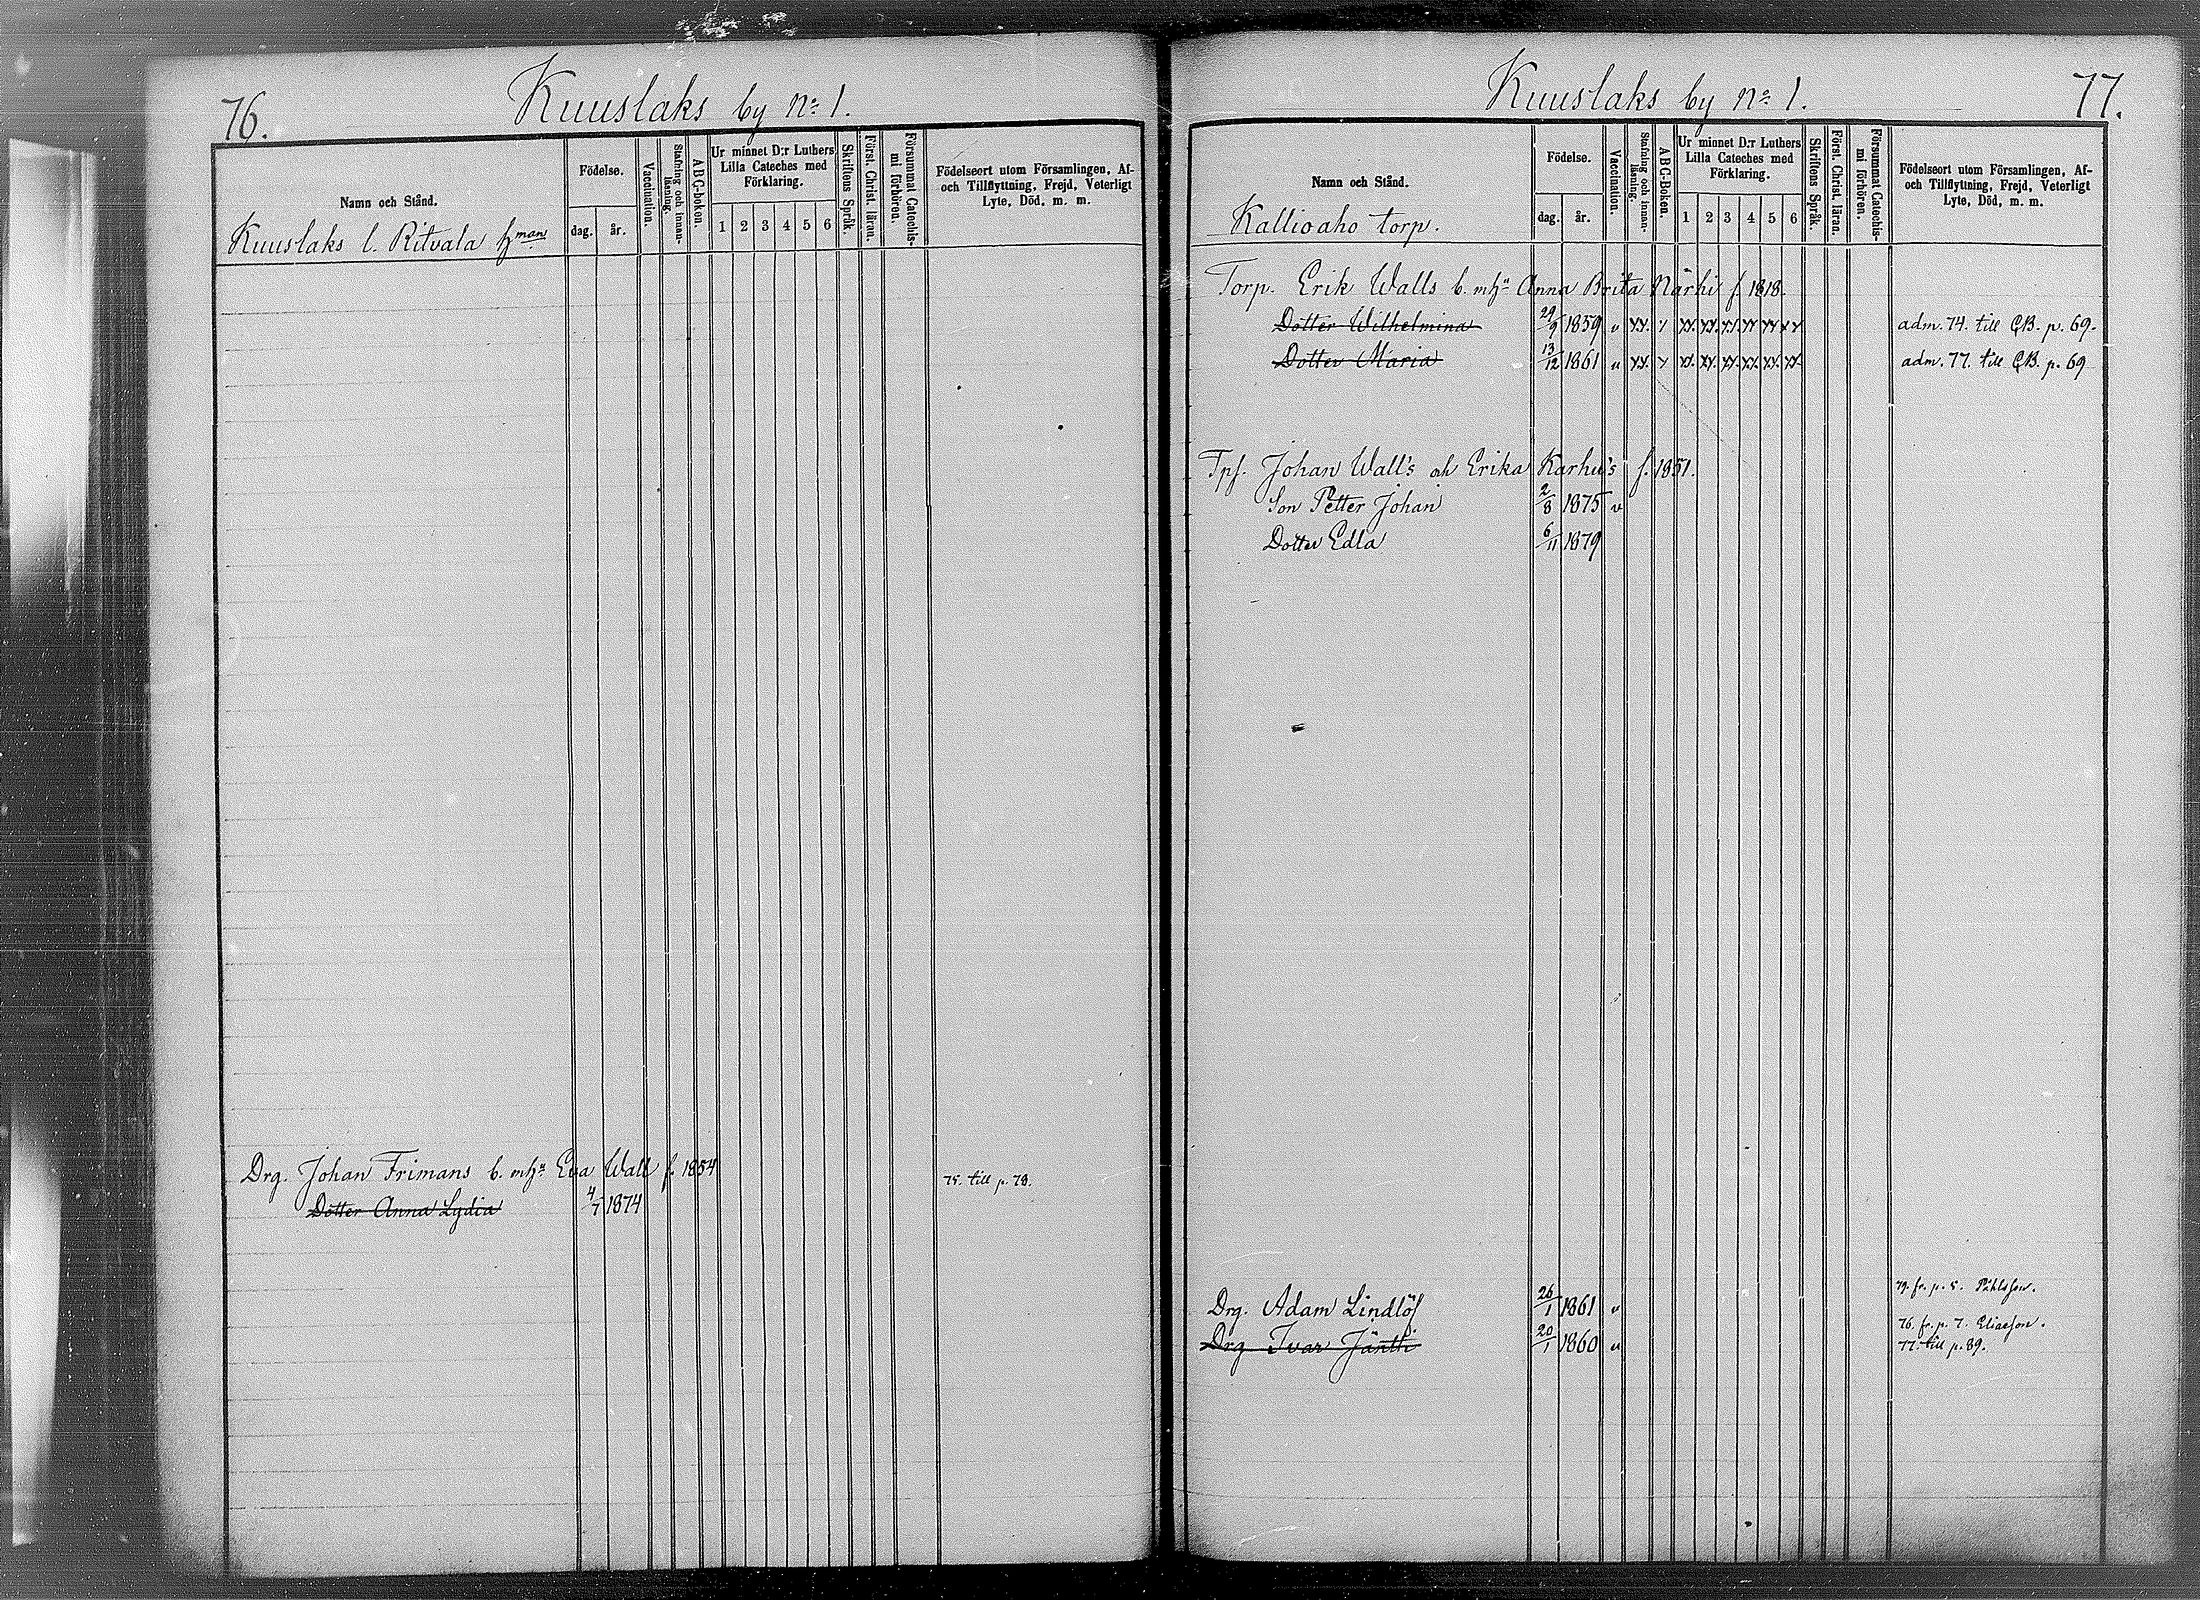 76.
Kuuslaks by No 1.
Namn och Stånd.
Kuuslaks l. Ritvala hman
Födelse.
dag. år.
Vaccination.
Stafning och innan-läsning.
ABC-boken.
Ur minnet D:r Luthers
Lilla Cateches med
Förklaring.
1 2 3 4 5 6
Skriftens Språk.
Först. Christ. läran.
Försummat Catechis-
mi förhören.
Födelseort utom Församlingen, Af-
och Tillflyttning, Frejd, Veterligt
Lyte, Död, m. m.
Drg. Johan Frimans b. mhu Eva Wall f. 1854 75. till p. 79.
Dotter Anna Lydia 4/7 1874
Kuuslaks by No 1.
77.
Namn och Stånd.
Kallioaho torp.
Födelse.
dag. år.
Vaccination.
Stafning och innan-
läsning.
ABC-Boken.
Ur minnet D:r Luthers
Lilla Cateches med
Förklaring.
1 2 3 4 5 6
Skriftens Språk.
Först. Christ. läran.
Försummat Catechis-
mi förhören.
Födelseort utom Församlingen, Af-
och Tillflyttning, Frejd, Veterligt
Lyte, Död, m. m.
Torp. Erik Walls b. mhu Anna Brita Närhi f. 1818.
Dotter Wilhelmina 29/9 1859 v adm. 74. till CB. p. 69.
Dotter Maria 13/12 1861 v adm. 77. till CB. p. 69
Tpf. Johan Wall's och Erika Karhu's f. 1851.
Son Petter Johan 2/8 1875 v
Dotter Edla 6/11 1879
Drg. Adam Lindlöf 26/1 1861 v 79. fr. p. 5. Påhlsson.
76. fr. p. 7. Eliasson.
Drg Ivar Jäntti 20/1 1860 v 77. till p. 89.